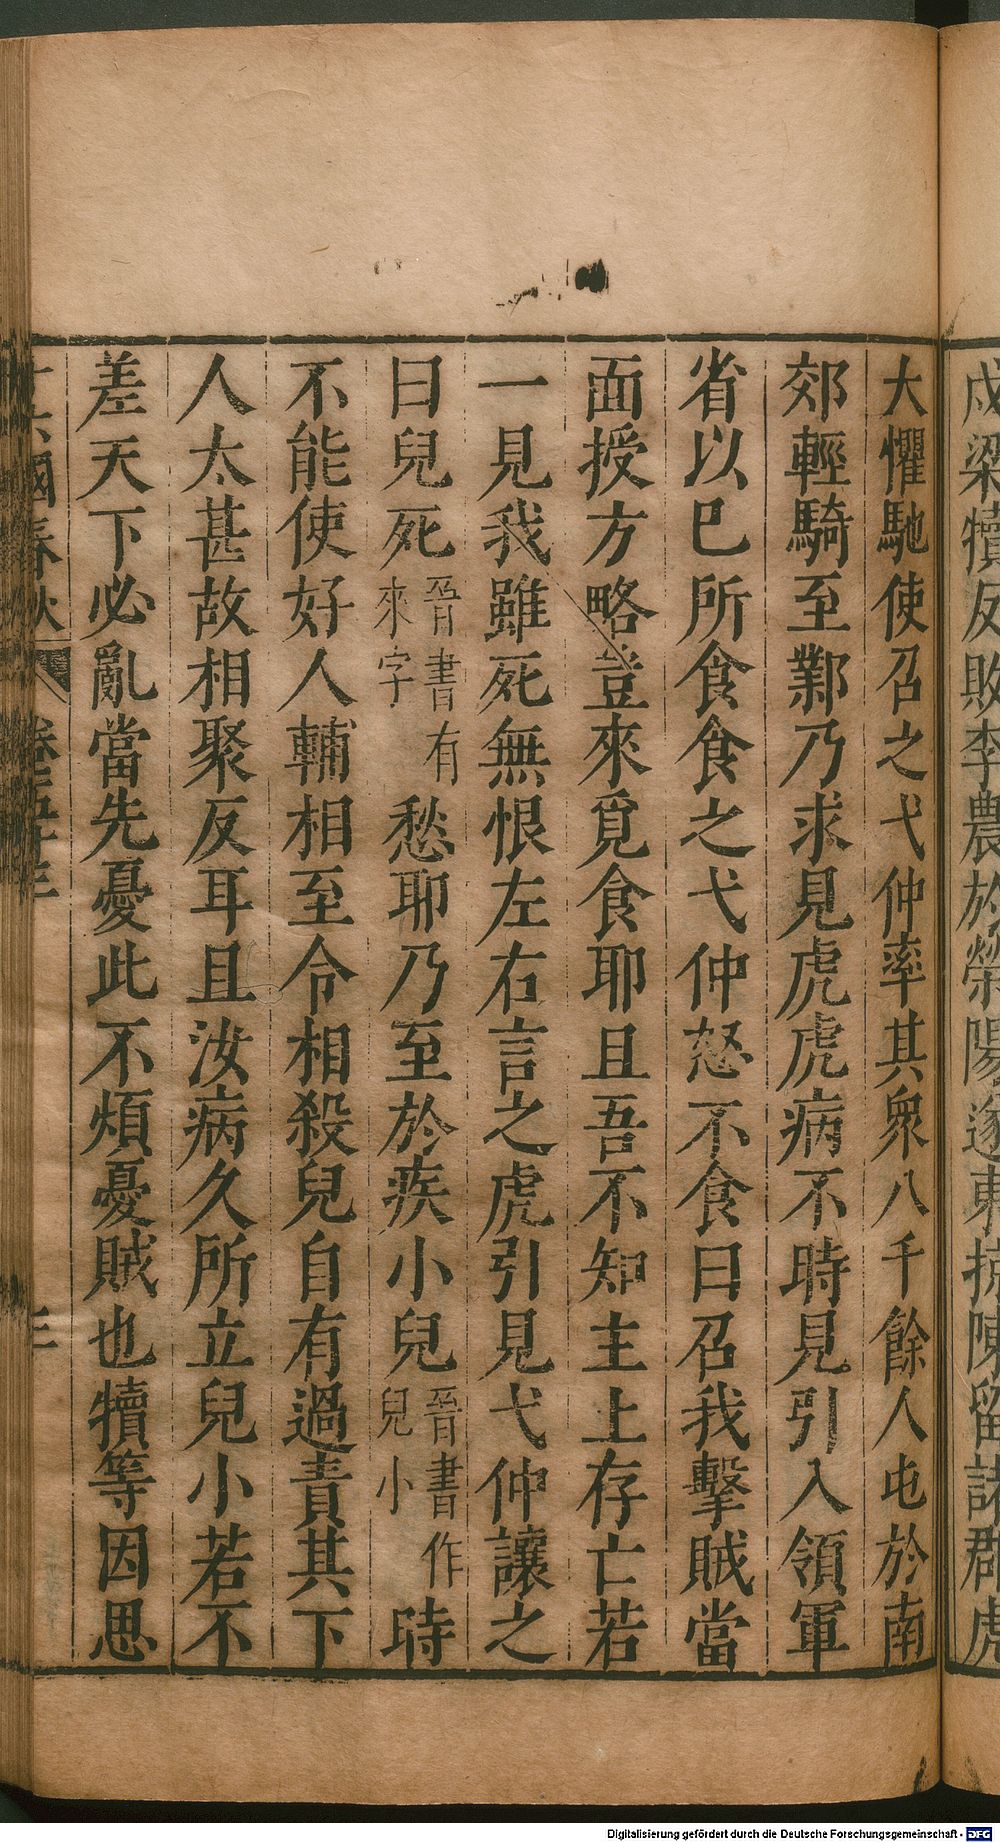 戍梁犢反敗李農於滎陽遂東掠陳留諸郡虎
大懼馳使召之弋仲率其衆八千餘人屯於南
郊輕騎至鄴乃求見虎虎病不時見引入領軍
省以巳所食食之弋仲怒不食曰召我擊賊當
面授方略豈來覓食耶且吾不知主上存亡若
一見我雖死無恨左右言之虎引見弋仲讓之
曰兒死晉書有來字愁耶乃至於疾小兒晉書作兒小時
不能使好人輔相至令相殺兒自有過責其下
人太甚故相聚反耳且汝病久所立兒小若不
差天下必亂當先憂此不煩憂賊也犢等因思
國春秋
Digitalisierung gefördert durch die Deutsche Forschungsgemeinschaft - DFG